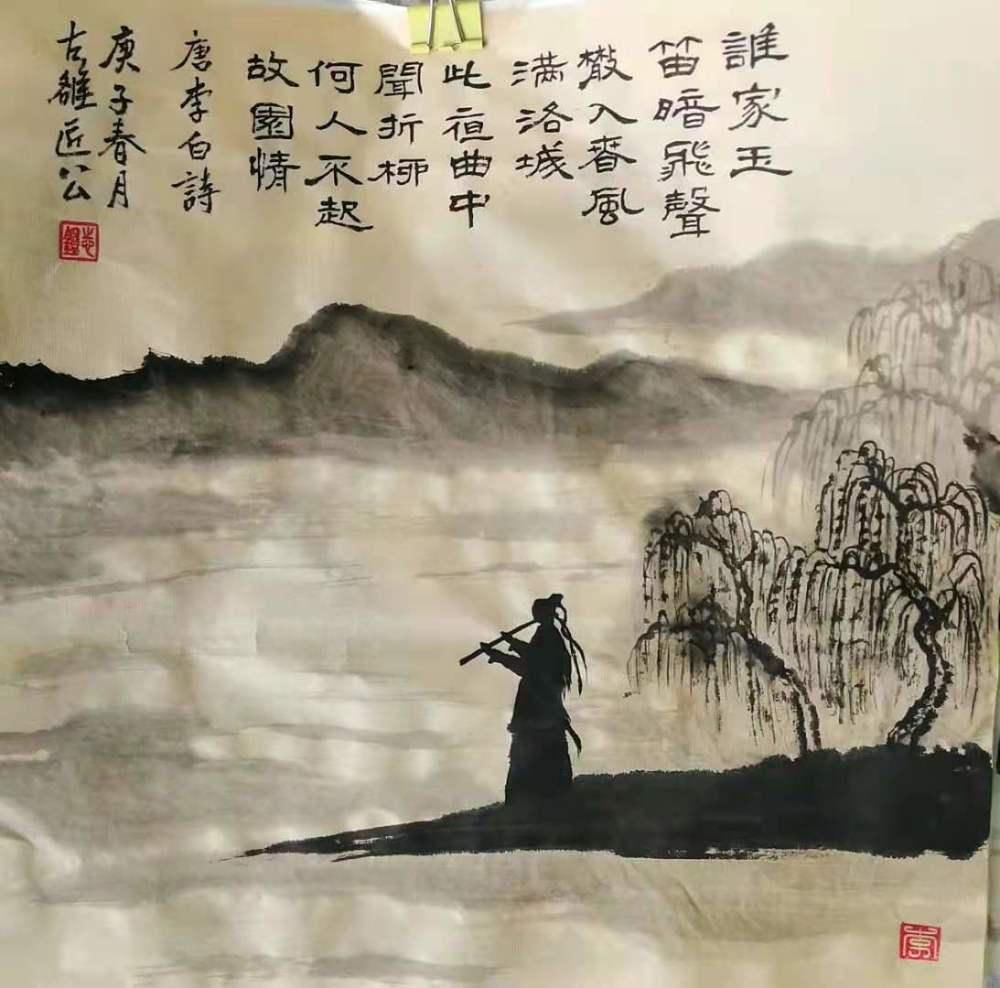 誰家玉
笛暗飛聲
散入春風
满洛城
此夜曲中
聞折柳
何人不起
故園情
唐李白詩
庚子春月
古雒匠公